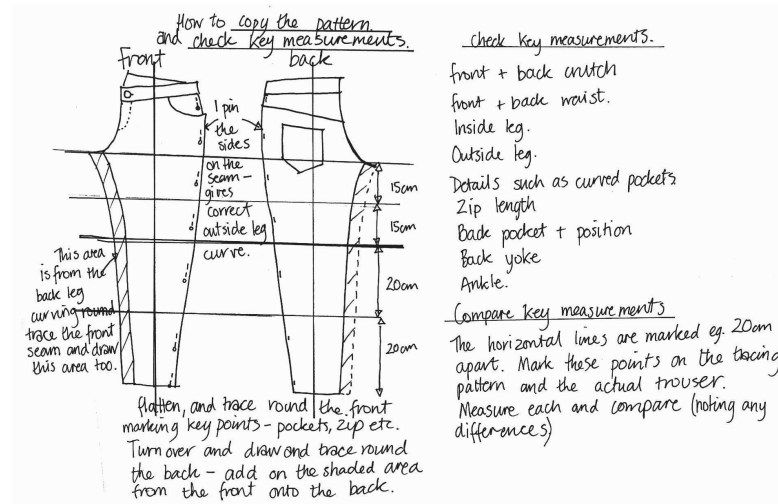 How to copy the pattern
and check key measurements.
Front
back
I pin
the
sides
on the
seam -
gives
correct
outside leg
curve.
15cm
15cm
20cm
20cm
This area
is from the
back leg
curving round
trace the front
seam and draw
this area too.
flatten, and trace round the front
marking key points - pockets, zip etc.
Turn over and draw and trace round
the back - add on the shaded area
from the front onto the back.
Check key measurements.
front + back crutch
front + back waist.
Inside leg.
Outside leg.
Details such as curved pockets
Zip length
Back pocket + position
Back yoke
Ankle.
Compare key measurements
The horizontal lines are marked eg. 20cm
apart. Mark these points on the tracing
pattern and the actual trouser.
Measure each and compare (noting any
differences)